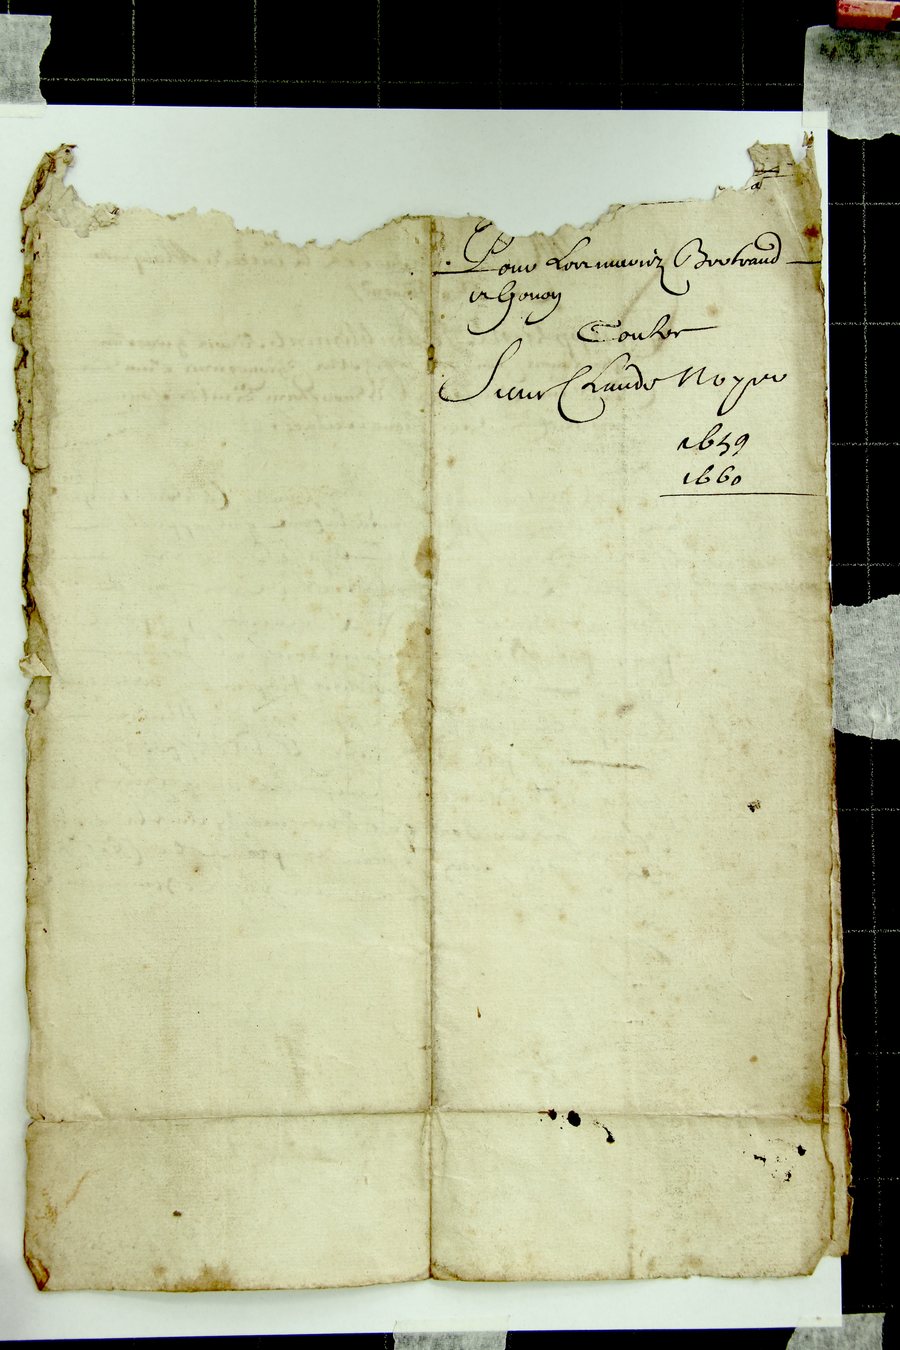 Pour Les mariez Bertrand
et Gonon
Contre
Sieur Claude Noyer
1659
1660